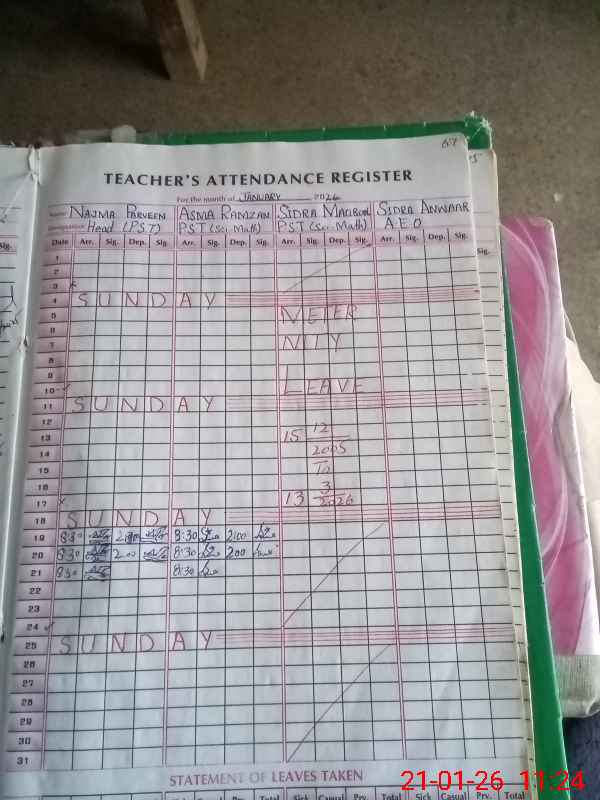 67
TEACHER'S ATTENDANCE REGISTER
For the month of JANUARY 2026
Name NAJMA PARVEEN ASMA RAMZAN SIDRA MAQBOOL SIDRA ANWAAR
Designation Head (PST) PST (Sci-Math) PST (Sci-Math) A E O
Date Arr. Sig. Dep. Sig. Arr. Sig. Dep. Sig. Arr. Sig. Dep. Sig. Arr. Sig. Dep. Sig.
1
2
3
4 SUNDAY
5 METER
6
7 NITY
8
9
10 LEAVE
11 SUNDAY
12
13 15 12
14 2005
15 To
16 3
17 13 2026
18 SUNDAY
19 8:30 2:00 8:30 2:00
20 8:30 2:00 8:30 200
21 830 8:30
22
23
24
25 SUNDAY
26
27
28
29
30
31
STATEMENT OF LEAVES TAKEN
Sick Casual Prv. Total Sick Casual Prv. Total Sick Casual Prv. Total
21-01-26 11:24